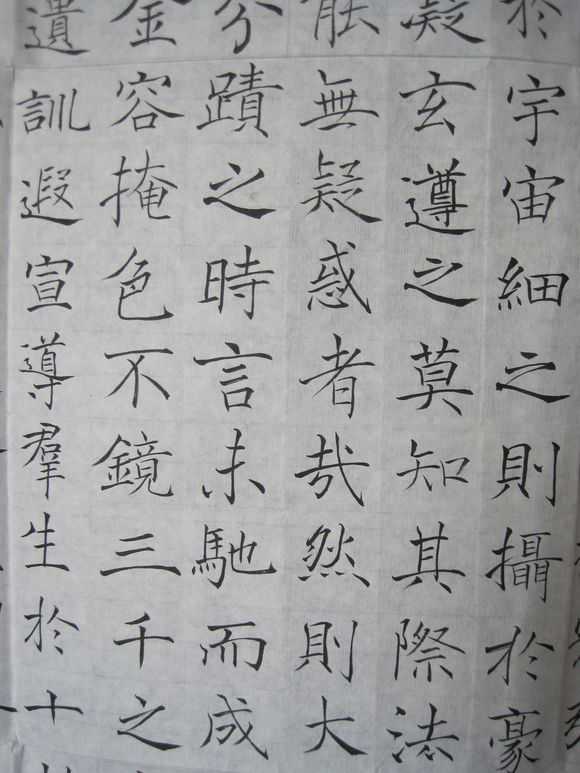 於宇宙細之則攝於豪
凝玄遵之莫知其際法
能無疑惑者哉然則大
分蹟之時言未馳而成
金容掩色不鏡三千之
遺訓遐宣導羣生於十